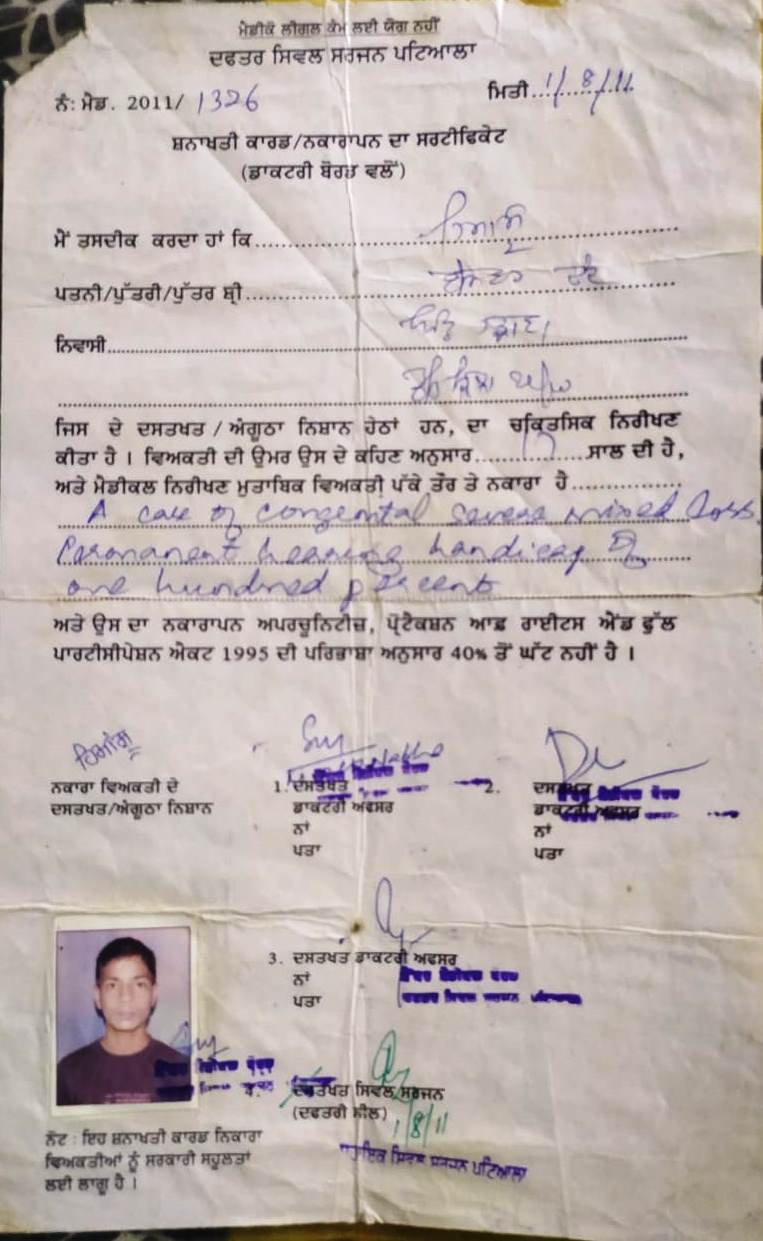 ਮੈਡੀਕੋ ਲੀਗਲ ਕੰਮ ਲਈ ਯੋਗ ਨਹੀਂ
ਦਫਤਰ ਸਿਵਲ ਸਰਜਨ ਪਟਿਆਲਾ
ਨੰ: ਮੈਡ. 2011/ 1326 ਮਿਤੀ...1/8/11
ਸ਼ਨਾਖਤੀ ਕਾਰਡ/ਨਕਾਰਾਪਨ ਦਾ ਸਰਟੀਫਿਕੇਟ
(ਡਾਕਟਰੀ ਬੋਰਡ ਵਲੋਂ)
ਮੈਂ ਤਸਦੀਕ ਕਰਦਾ ਹਾਂ ਕਿ
ਪਤਨੀ/ਪੁੱਤਰੀ/ਪੁੱਤਰ ਸ਼੍ਰੀ
ਨਿਵਾਸੀ
ਜਿਸ ਦੇ ਦਸਤਖਤ / ਅੰਗੂਠਾ ਨਿਸ਼ਾਨ ਹੇਠਾਂ ਹਨ, ਦਾ ਚਕ੍ਰਿਤਸਿਕ ਨਿਰੀਖਣ
ਕੀਤਾ ਹੈ । ਵਿਅਕਤੀ ਦੀ ਉਮਰ ਉਸ ਦੇ ਕਹਿਣ ਅਨੁਸਾਰ ਸਾਲ ਦੀ ਹੈ,
ਅਤੇ ਮੈਡੀਕਲ ਨਿਰੀਖਣ ਮੁਤਾਬਿਕ ਵਿਅਕਤੀ ਪੱਕੇ ਤੌਰ ਤੇ ਨਕਾਰਾ ਹੈ
A case of congenital severe mixed loss.
Permanent hearing handicap of
one hundred percent
ਅਤੇ ਉਸ ਦਾ ਨਕਾਰਾਪਨ ਅਪਰਚੂਨਿਟੀਜ਼, ਪ੍ਰੋਟੈਕਸ਼ਨ ਆਫ਼ ਰਾਈਟਸ ਐਂਡ ਫੁੱਲ
ਪਾਰਟੀਸੀਪੇਸ਼ਨ ਐਕਟ 1995 ਦੀ ਪਰਿਭਾਸ਼ਾ ਅਨੁਸਾਰ 40% ਤੋਂ ਘੱਟ ਨਹੀਂ ਹੈ ।
ਨਕਾਰਾ ਵਿਅਕਤੀ ਦੇ 1. ਦਸਤਖਤ 2. ਦਸਤਖਤ
ਦਸਤਖਤ/ਅੰਗੂਠਾ ਨਿਸ਼ਾਨ ਡਾਕਟਰੀ ਅਫਸਰ ਡਾਕਟਰੀ ਅਫਸਰ
ਨਾਂ ਨਾਂ
ਪਤਾ ਪਤਾ
3. ਦਸਤਖਤ ਡਾਕਟਰੀ ਅਫਸਰ
ਨਾਂ
ਪਤਾ
ਦਸਤਖਤ ਸਿਵਲ ਸਰਜਨ
(ਦਫਤਰੀ ਸੀਲ) 1/8/11
ਨੋਟ : ਇਹ ਸ਼ਨਾਖਤੀ ਕਾਰਡ ਨਿਕਾਰਾ
ਵਿਅਕਤੀਆਂ ਨੂੰ ਸਰਕਾਰੀ ਸਹੂਲਤਾਂ
ਲਈ ਲਾਗੂ ਹੈ ।
ਸਹਾਇਕ ਸਿਵਲ ਸਰਜਨ ਪਟਿਆਲਾ